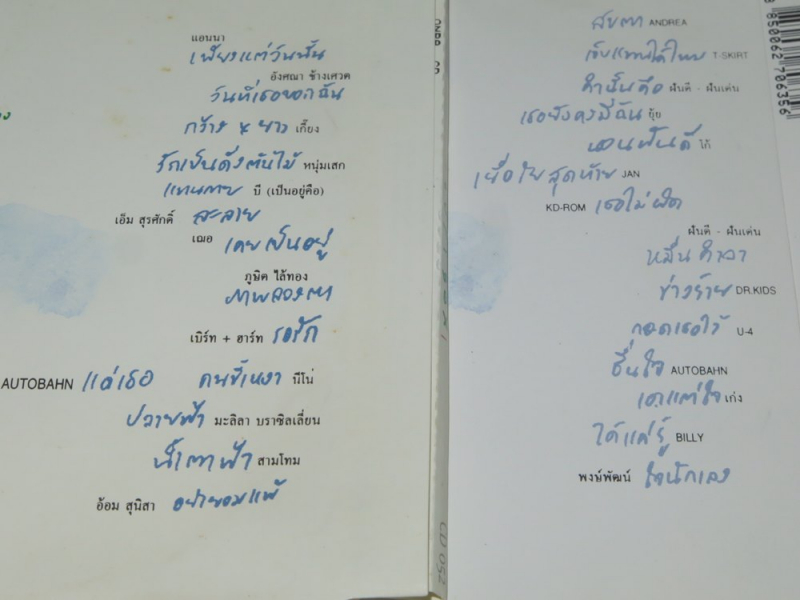 แอนนา
เพียงแต่วันนั้น
อังศณา ช้างเศวต
วันที่เธอบอกฉัน
กว้าง x ยาว เกี๊ยง
รักเป็นดั่งต้นไม้ หนุ่มเสก
แทนกาย บี (เป็นอยู่คือ)
เอ็ม สุรศักดิ์ ละลาย
เฌอ เคยเป็นอยู่
ภูษิต ไล้ทอง
ภาพลวงตา
เบิร์ท + ฮาร์ท รอรัก
AUTOBAHN แด่เธอ คนขี้เหงา นีโน่
ปลายฟ้า มะลิลา บราซิลเลี่ยน
น้ำตาฟ้า สามโทน
อ้อม สุนิสา อย่ายอมแพ้
สบตา ANDREA
เจ็บแทนได้ไหม T-SKIRT
คำนั้นคือ ฝันดี - ฝันเด่น
เธอยังคงมีฉัน ยุ้ย
นอนฝันดี โก้
เยื่อใยสุดท้าย JAN
KD-ROM เธอไม่ผิด
ฝันดี - ฝันเด่น
หมื่นคำลา
ช่างร้าย DR.KIDS
กอดเธอไว้ U-4
ชื่นใจ AUTOBAHN
เดาแต่ใจ เก่ง
ได้แค่รู้ BILLY
พงษ์พัฒน์ ใจนักเลง
8 850062 706356
CD 052